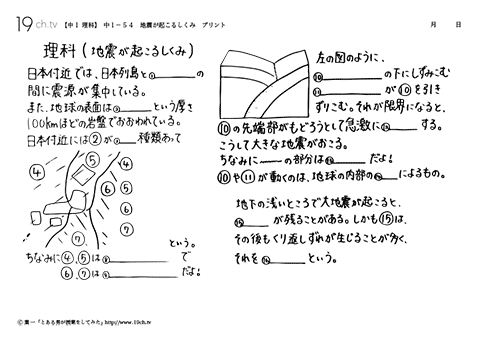 19ch.tv 【中1 理科】 中1-54 地震が起こるしくみ プリント 月 日
理科(地震が起こるしくみ)
日本付近では、日本列島と①の
間に震源が集中している。
また、地球の表面は②という厚さ
100kmほどの岩盤でおおわれている。
日本付近には②が③種類あって
④ ⑤
④ ⑤
⑥
⑥
⑦
⑦
という。
ちなみに④、⑤は⑧で
⑥、⑦は⑨だよ!
左の図のように、
⑩の下にしずみこむ
⑪が⑩を引き
ずりこむ。それが限界になると、
⑩の先端部がもどろうとして急激に⑫する。
こうして大きな地震がおこる。
ちなみに〰の部分は⑬だよ!
⑩や⑪が動くのは、地球の内部の⑭によるもの。
地下の浅いところで大地震が起こると、
⑮が残ることがある。しかも⑮は、
その後もくり返しずれが生じることが多く、
それを⑯という。
©葉一「とある男が授業をしてみた」http://www.19ch.tv